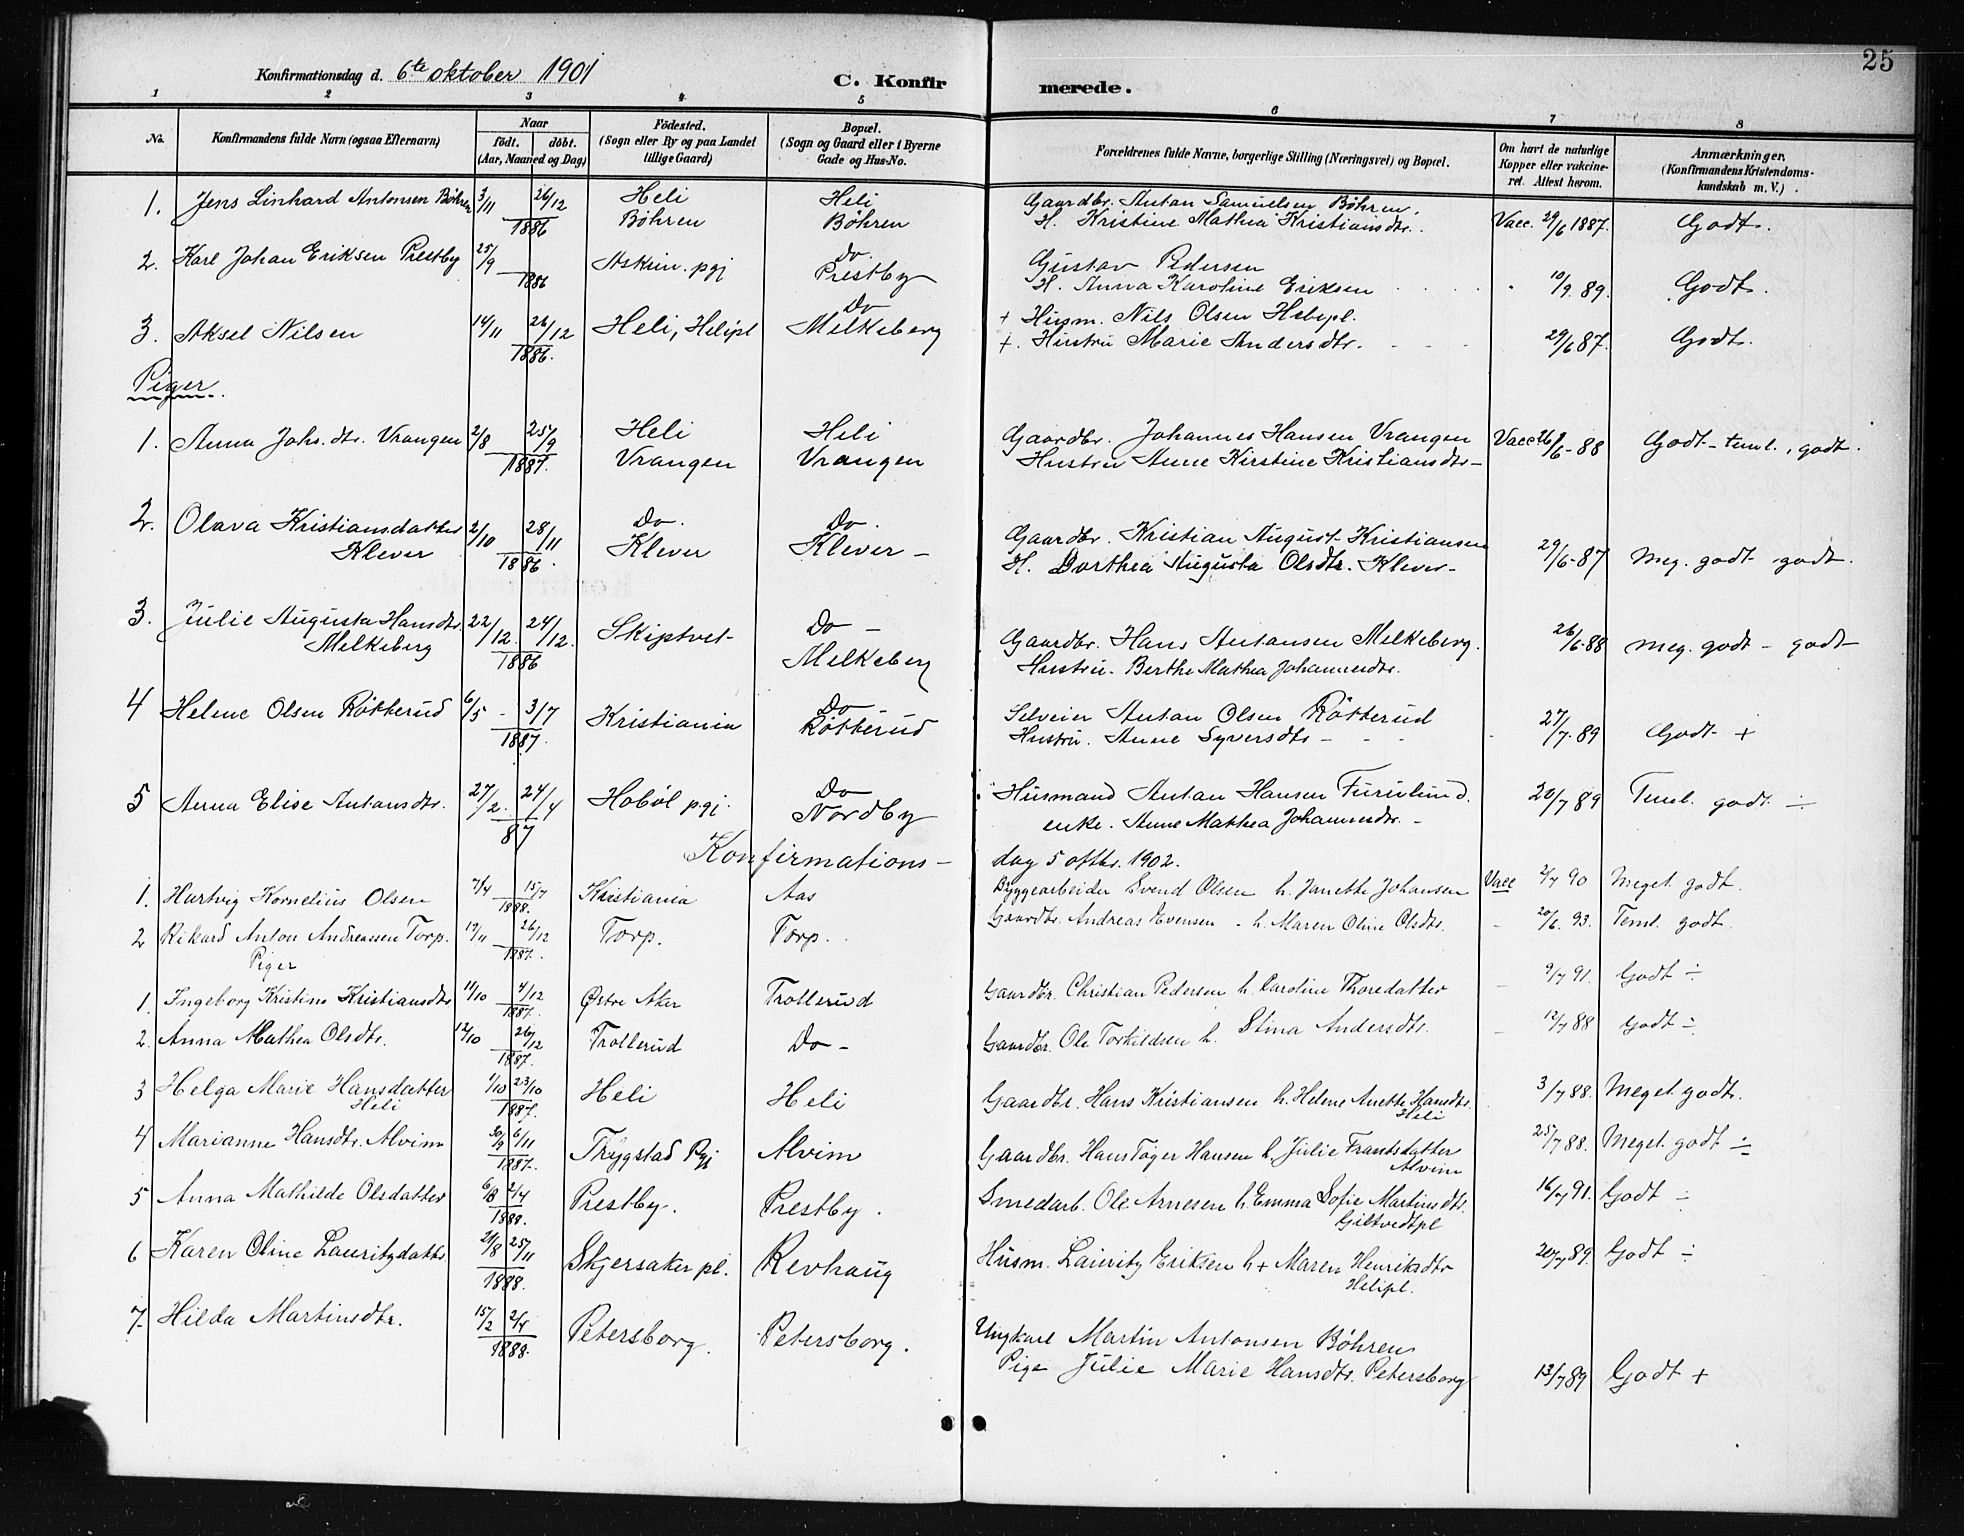 25
Konfirmationsdag d. 6te oktober 1901
C. Konfirmerede.
1 2 3 4 5 6 7 8
No. Konfirmandens fulde Navn (ogsaa Efternavn) Naar født. døbt. (Aar, Maaned og Dag) Fødested. (Sogn eller By og paa Landet tillige Gaard) Bopæl. (Sogn og Gaard eller i Byerne Gade og Hus-No. Forældrenes fulde Navne, borgerlige Stilling (Næringsvei) og Bopæl. Om havt de naturlige Kopper eller vaccineret. Attest herom. Anmærkninger. (Konfirmandens Kristendomskundskab m. V.)
1. Jens Linhard Antonsen Böhren 3/11 26/12 1886 Heli Böhren Heli Böhren Gaardbr. Anton Samuelsen Böhren. H. Kristine Mathea Kristiansdtr. Vacc. 29/6 1887. Godt.
2. Karl Johan Eriksen Prestby 25/9 — 1886 Askim pgj Do. Prestby Gustav Pedersen H. Anna Karoline Eriksen 10/9. 89. Godt.
3. Aksel Nilsen 14/11 26/12 1886. Heli, Helipl Do Melkeberg + Husm. Nils Olsen Helepl. +. Hustru Marie Andersdtr. 29/6 87. Godt.
Piger.
1. Anna Johs.dtr. Vrangen 2/8 25/9 1887. Heli Vrangen Heli Vrangen Gaardbr. Johannes Hansen Vrangen Hustru Anne Kirstine Kristiansdtr- Vacc 26/6-88 Godt - teml. godt.
2. Olava Kristiansdatter Klever 2/10 28/11 1886. Do. Klever Do. Klever - Gaardbr. Kristian August Kristiansen H. Dorthea Augusta Olsdtr. Klever- 29/6-87 Meg. godt godt.
3. Julie Augusta Hansdtr. Melkeberg 22/12. 24/12. 1886 Skiptvet- Do - Melkeberg Gaardbr. Hans Antonsen Melkeberg. Hustru. Berthe Mathea Johannesdtr. 26/6-88 meg. godt - godt
4 Helene Olsen Røtterud 6/5 - 3/7 1887. Kristiania Do Røtterud Selveier Anton Olsen Røtterud Hustru. Anne Syversdtr - 27/7-89 Godt +
5 Anna Elise Antonsdtr. 27/2. 24/4 87 Hobøl pgj. Do Nordby Husmand Anton Hansen Furulund. enke. Anne Mathea Johannesdtr. - 20/7 89 Teml. godt ÷
Konfirmations- dag 5 oktbr. 1902.
1. Hartvig Kornelius Olsen 7/4 15/7 1888. Kristiania Aas Byggearbeider Svend Olsen h. Janette Johansen Vacc 2/7 90 Meget godt.
2 Rikard Anton Andreassen Torp. 19/11 26/12 1887. Torp. Torp. Gaardbr. Andreas Evensen - h. Maren Oline Olsdtr. 20/6. 93. Teml. godt.
Piger
1. Ingeborg Kristine Kristiansdtr 11/10 4/12 1887. Østre Aker Trollerud Gaardbr. Christian Pedersen h. Caroline Thoredatter 9/7 91. Godt ÷
2. Anna Mathea Olsdtr. 12/10 26/12 1887. Trollerud Do - Gaardbr. Ole Torkildsen h. Stina Andersdtr. 12/7 88 Godt ÷
3 Helga Marie Hansdatter Heli 1/10 23/10 1887. Heli Heli Gaardbr. Hans Kristiansen h. Helene Anette Hansdtr. Heli 3/7 88. Meget godt.
4 Marianne Hansdtr. Alvim 30/9 6/11 1887. Trygstad Pgj Alvim Gaardbr. Hans Töger Hansen h. Julie Frantsdatter Alvim 25/7 88. Meget godt ÷
5 Anna Mathilde Olsdatter 6/8 2/4 1888. Prestby. Prestby. Smedarb. Ole Arnesen h. Emma Sofie Martinsdtr. Giltvedtpl 16/7 91. Godt ÷
6 Karen Oline Lauritzdatter 21/8 25/11 1888. Skjersaker pl. Revhaug Husm. Lauritz Eriksen h + Maren Henriksdtr Helipl. 20/7 89. Godt ÷
7- Hilda Martinsdtr. 15/2 2/4 1888. Petersborg. Petersborg. Ungkarl Martin Antonsen Böhren Pige Julie Marie Hansdtr. Petersborg 13/7 89 Godt +